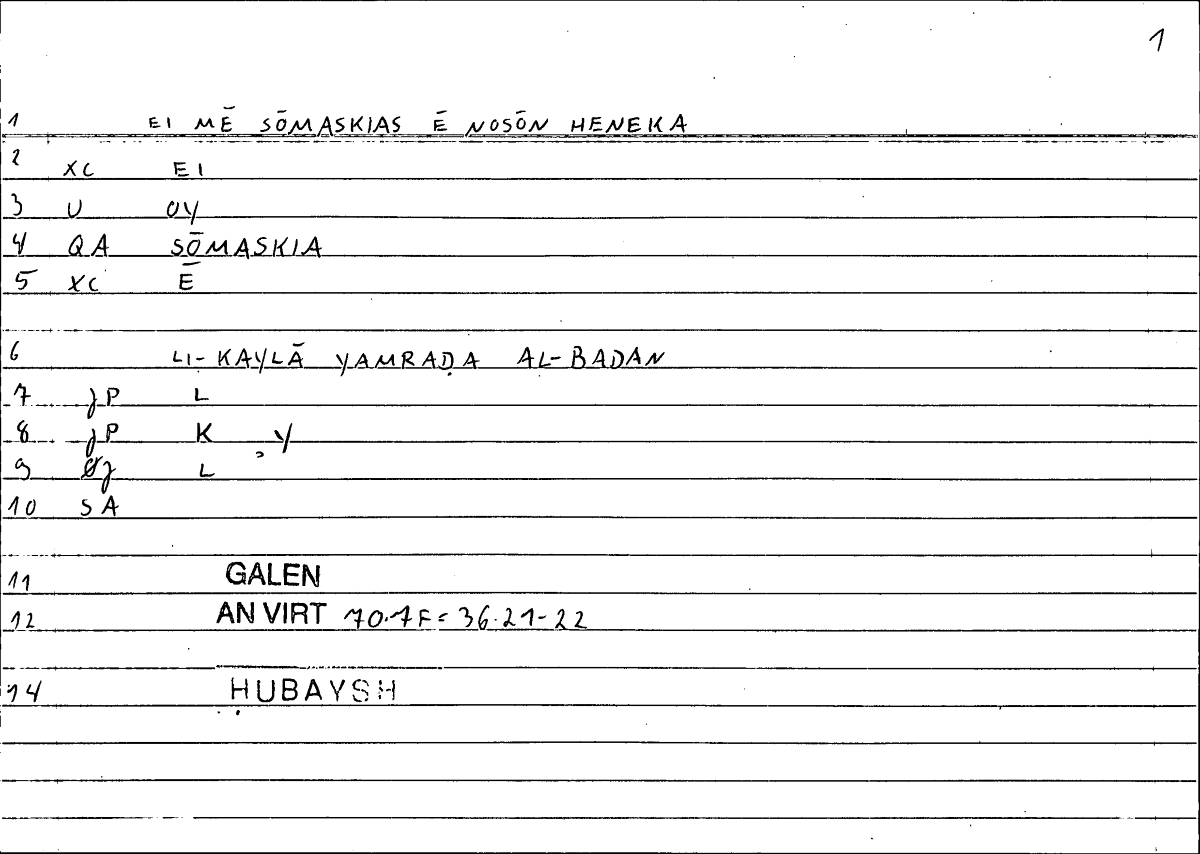 1
1 EI MĒ SŌMASKIAS Ē NOSŌN HENEKA
2 XC EI
3 U OY
4 QA SŌMASKIA
5 XC Ē
6 LI-KAYLĀ YAMRAḌA AL-BADAN
7 JP L
8 JP K , Y
9 L
10 SA
11 GALEN
12 AN VIRT 70.7F = 36.21-22
14 ḤUBAYSH